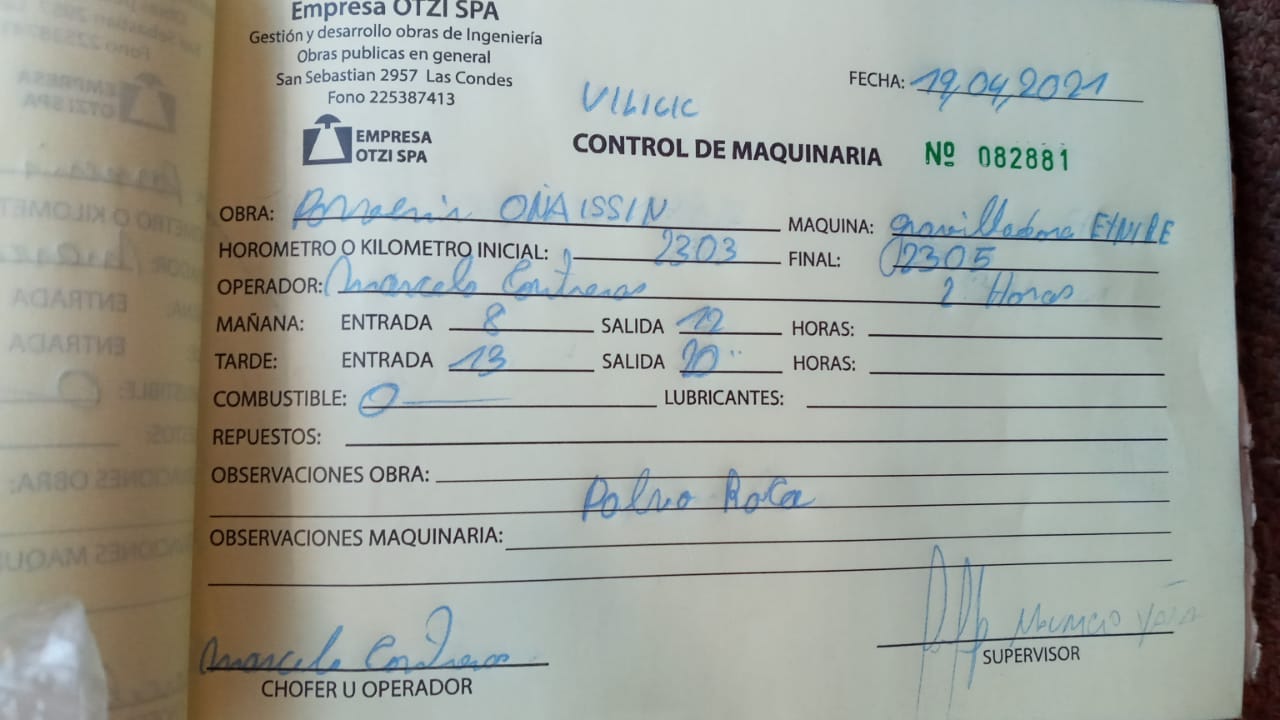 Empresa OTZI SPA
Gestión y desarrollo obras de Ingeniería
Obras publicas en general
San Sebastian 2957 Las Condes
Fono 225387413
EMPRESA
OTZI SPA
VILICIC
FECHA: 19,04,2021
CONTROL DE MAQUINARIA Nº 082881
OBRA: OÑAISSIN MAQUINA: Gravilladora
HOROMETRO O KILOMETRO INICIAL: 2303 FINAL: 2305
OPERADOR: Marcelo Contreras 2 Horas
MAÑANA: ENTRADA 8 SALIDA 12 HORAS:
TARDE: ENTRADA 13 SALIDA 20 HORAS:
COMBUSTIBLE: 0 LUBRICANTES:
REPUESTOS:
OBSERVACIONES OBRA:
Polvo Roca
OBSERVACIONES MAQUINARIA:
Marcelo Contreras
CHOFER U OPERADOR
Mauricio
SUPERVISOR